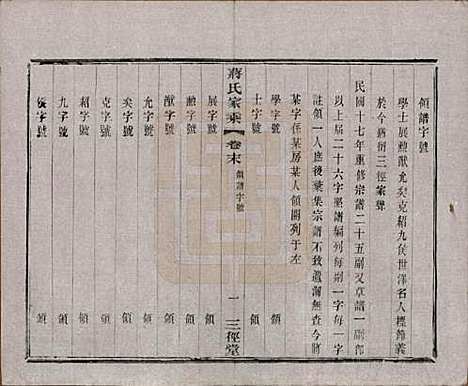 領譜字號
學士展勲猷允奕克紹九侯世澤名人標雅義
於今猶衍三徑家聲
民國十七年重修宗譜二十五副又草譜一副都
以上屆二十六字墅譜編列每副一字每一字
註領一人庶後彙集宗譜不致遺漏無查今將
某字係某房某人領開列于左
學字號 領
士字號 領
蔣氏家乘 卷末 領譜字號 一 三徑堂
展字號 領
勲字號 領
猷字號 領
允字號 領
奕字號 領
克字號 領
紹字號 領
九字號 領
侯字號 領